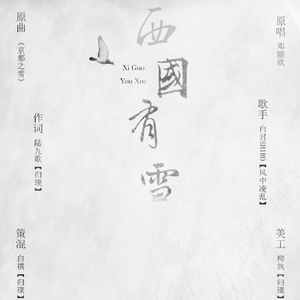 西國有雪
Xi Guo
You Xue
原曲
《京都之雪》
原唱
邓丽欣
作词
陆九歌【归璞】
歌手
白君SHIRO【风中凌乱】
策混
白祺【归璞】
美工
栁执【归璞】